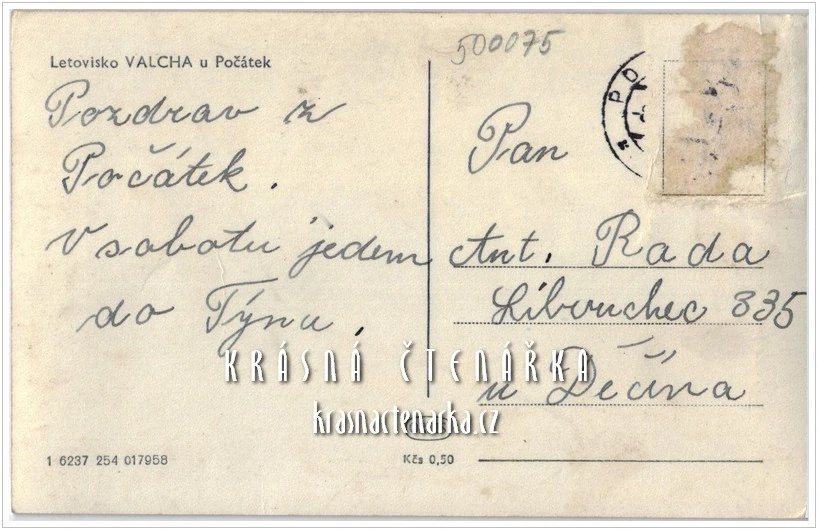 500075
Letovisko VALCHA u Počátek
Pozdrav z
Počátek.
V sobotu jedem
do Týnu.
Pan
Ant. Rada
Libouchec 335
u Děčína
KRÁSNÁ ČTENÁŘKA
krasnactenarka.cz
1 6237 254 017958
Kčs 0,50